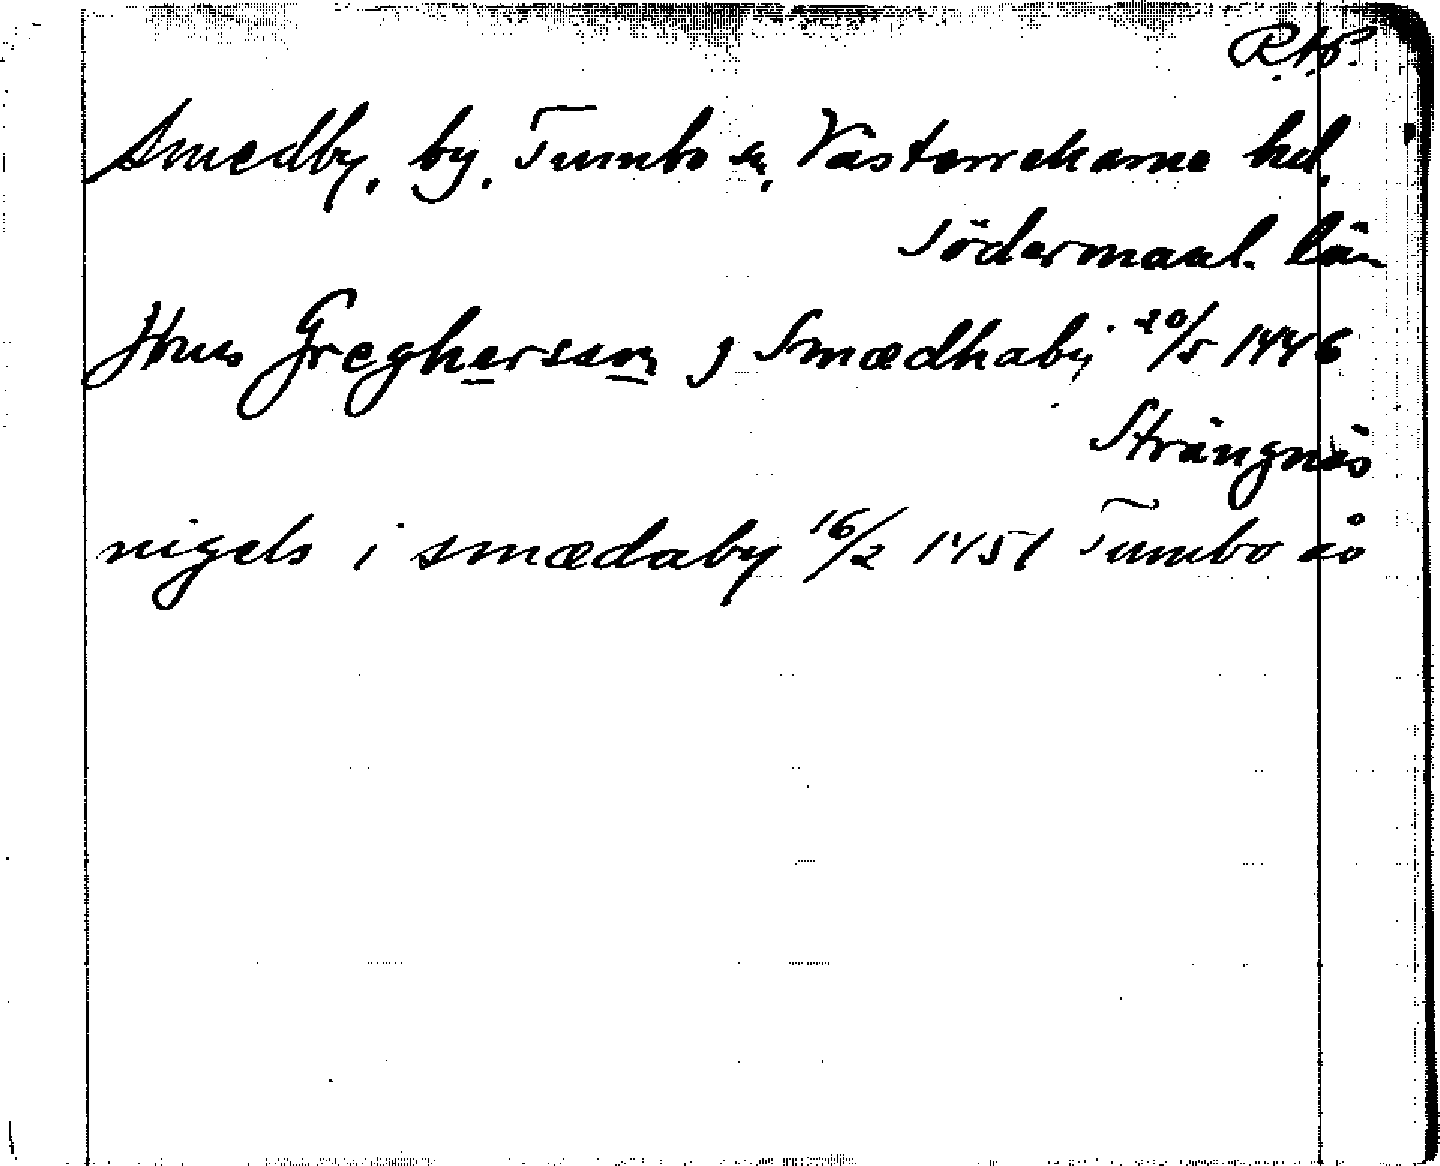 R.A.P.
Smedby, by, Tumbo sn, Västerrekarne hd.
Södermanl. län
Jöns Greghersson j Smædhaby 20/5 1446
Strängnäs
nigels i smædaby 16/2 1451 Tumbo ao